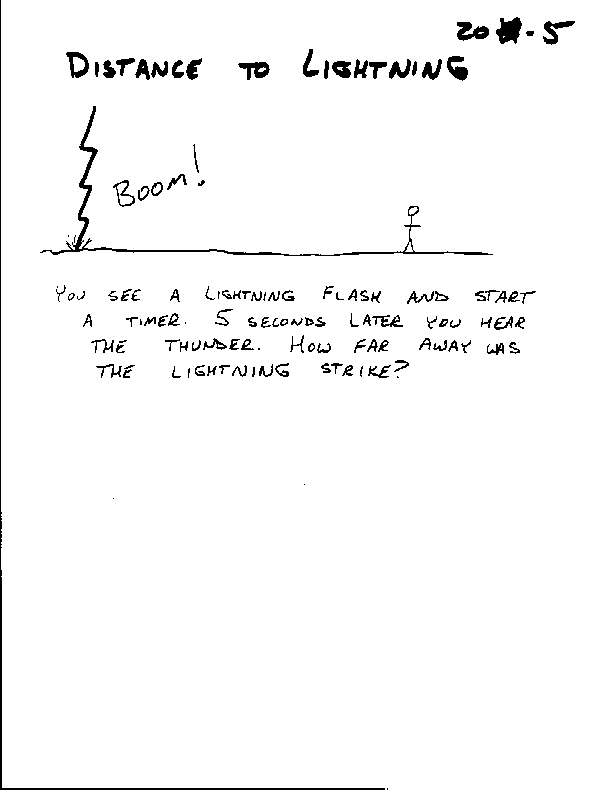 20 - 5
DISTANCE TO LIGHTNING
BOOM!
YOU SEE A LIGHTNING FLASH AND START
A TIMER. 5 SECONDS LATER YOU HEAR
THE THUNDER. HOW FAR AWAY WAS
THE LIGHTNING STRIKE?